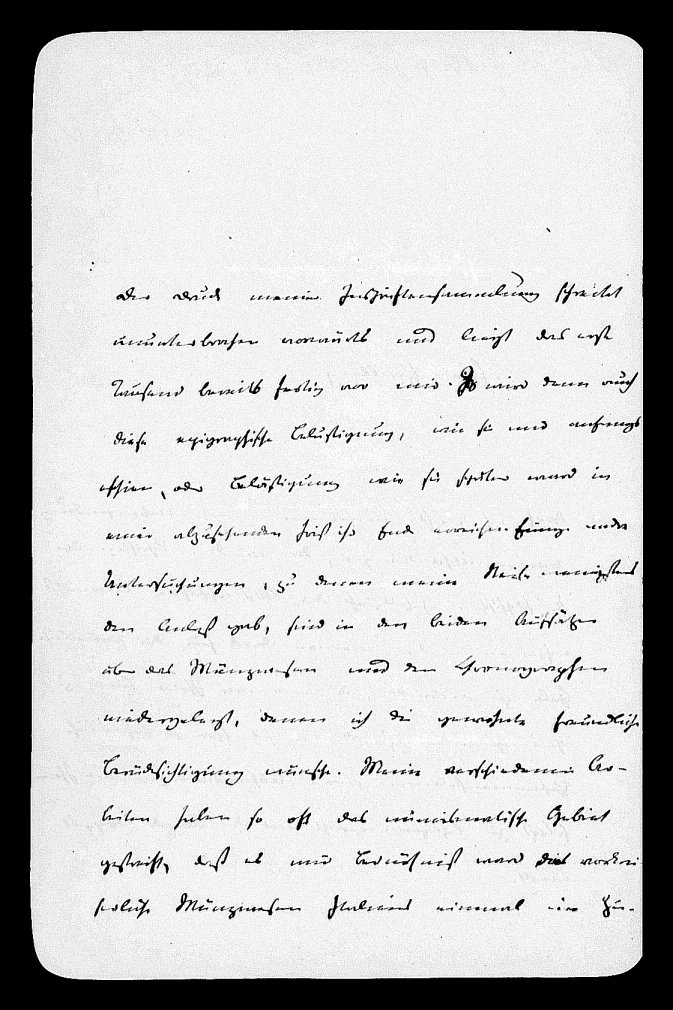 Der Druck meiner Inschriftensammlung schreitet
ununterbrochen vorwärts und liegt das erste
Tausend bereits fertig vor mir. So wird denn auch
diese epigraphische Belustigung, wie sie mir anfangs
schien, oder Belästigung wie sie später ward in
einer abzusehenden Frist ihr Ende erreichen. Einige andre
Untersuchungen, zu denen meine Reise wenigstens
den Anlaß gab, sind in den beiden Aufsätzen
über das Münzwesen und den Chronographen
niedergelegt, denen ich die gewohnte freundliche
Berücksichtigung wünsche. Meine verschiedenen Ar-
beiten haben so oft das numismatische Gebiet
gestreift, daß es mir Bedürfniß ward das vorkai
serliche Münzwesen Italiens einmal im Zu-